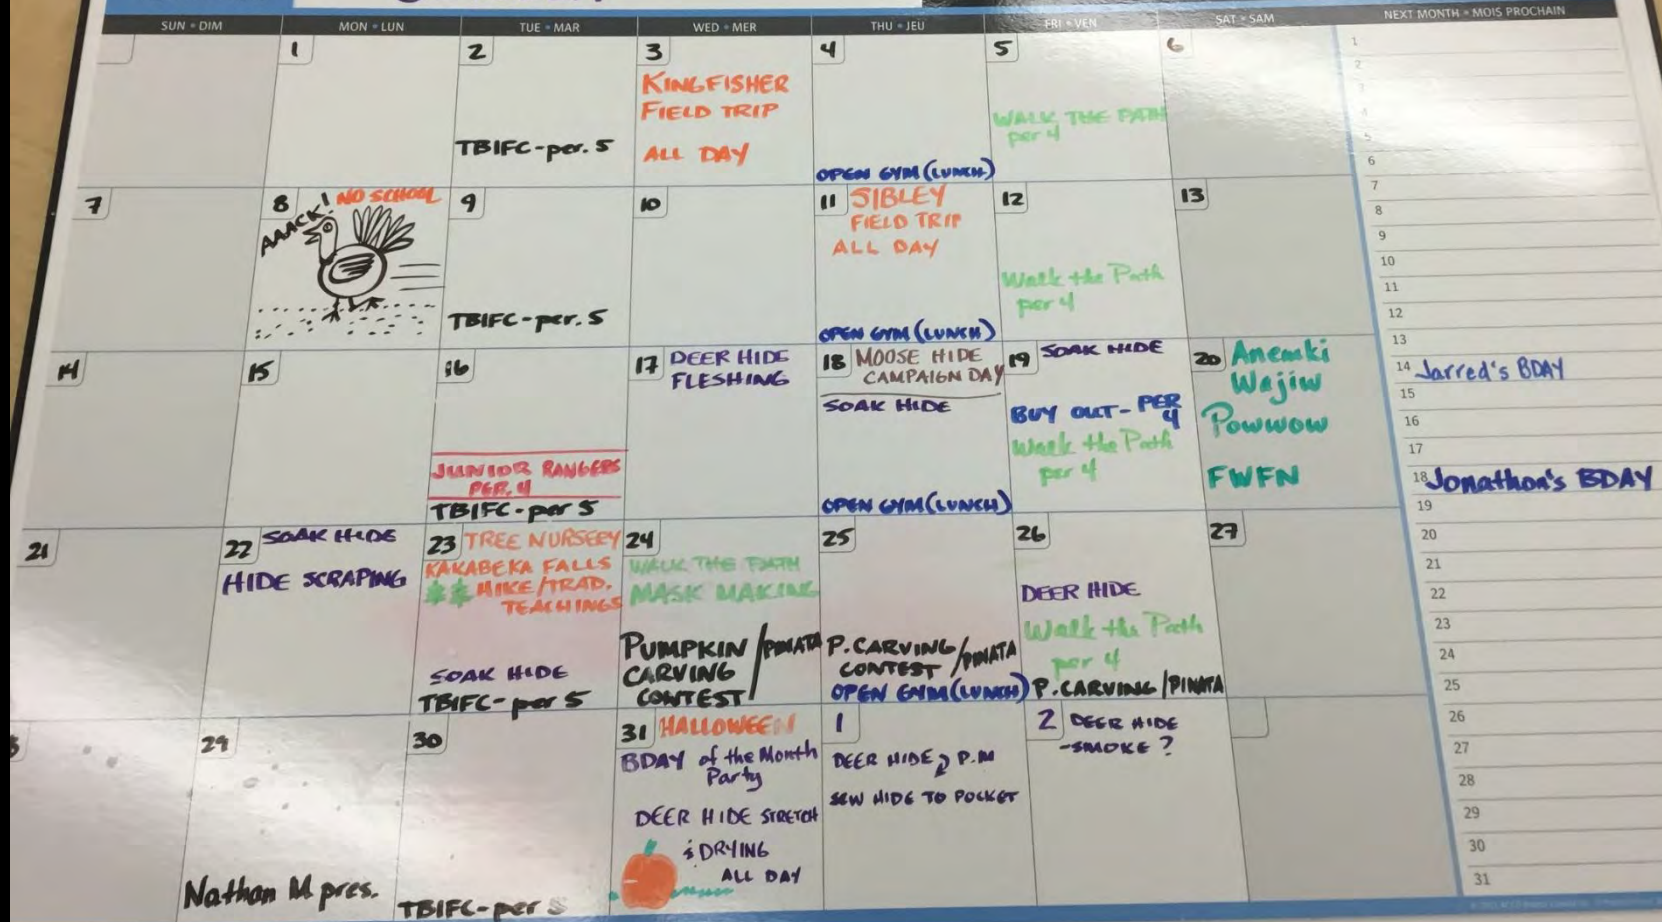 SUN • DIM
MON • LUN
TUE • MAR
WED • MER
THU • JEU
FRI • VEN
SAT • SAM
NEXT MONTH • MOIS PROCHAIN
1
2
TBIFC-per. 5
3
KINGFISHER
FIELD TRIP
ALL DAY
4
OPEN GYM (LUNCH)
5
WALK THE PATH
per 4
6
7
8
NO SCHOOL
AAACK!
9
TBIFC-per. 5
10
11 SIBLEY
FIELD TRIP
ALL DAY
OPEN GYM (LUNCH)
12
Walk the Path
per 4
13
14
15
16
JUNIOR RANGERS
PER. 4
TBIFC-per 5
17 DEER HIDE
FLESHING
18 MOOSE HIDE
CAMPAIGN DAY
SOAK HIDE
OPEN GYM (LUNCH)
19 SOAK HIDE
BUY OUT - PER
4
Walk the Path
per 4
20 Anemki
Wajiw
Powwow
FWFN
21
22 SOAK HIDE
HIDE SCRAPING
23 TREE NURSERY
KAKABEKA FALLS
** HIKE/TRAD.
TEACHINGS
SOAK HIDE
TBIFC-per 5
24
WALK THE PATH
MASK MAKING
PUMPKIN /PINATA
CARVING
CONTEST
25
P. CARVING /PINATA
CONTEST
OPEN GYM (LUNCH)
26
DEER HIDE
Walk the Path
per 4
P. CARVING /PINATA
27
29
Nathan M pres.
30
TBIFC-per 5
31 HALLOWEEN
BDAY of the Month
Party
DEER HIDE STRETCH
& DRYING
ALL DAY
1
DEER HIDE P.M
SEW HIDE TO POCKET
2 DEER HIDE
-SMOKE?
1
2
3
4
5
6
7
8
9
10
11
12
13
14 Jarred's BDAY
15
16
17
18 Jonathon's BDAY
19
20
21
22
23
24
25
26
27
28
29
30
31